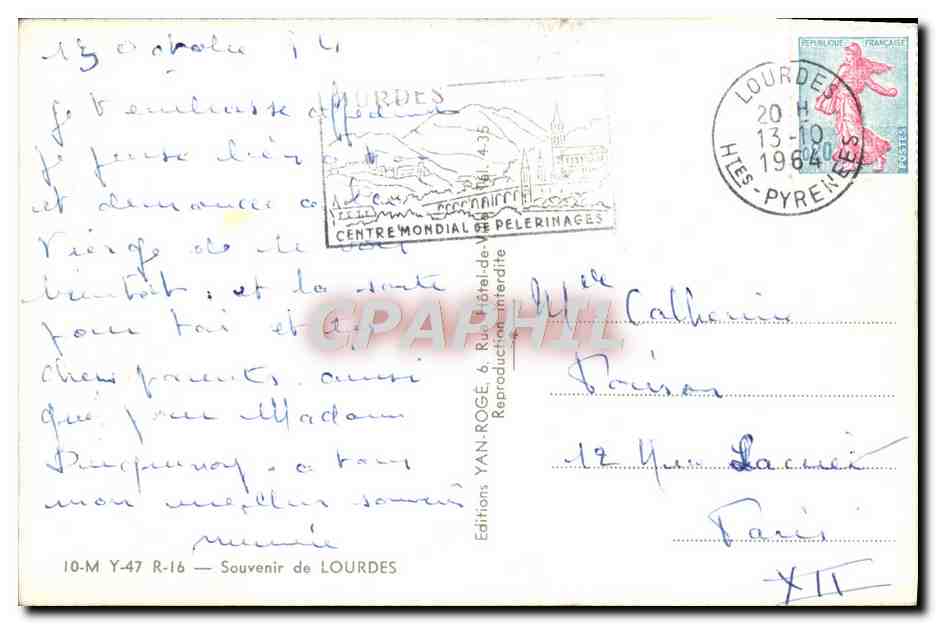 13 octobre 64
Je t'embrasse
je pense bien à toi
et demande à la
Vierge de te voir
bientôt, et la santé
pour toi et tes
chers parents, ainsi
que pour Madame
à tous
mon meilleur souvenir
10-M Y-47 R-16 — Souvenir de LOURDES
LOURDES
CENTRE MONDIAL DE PELERINAGES
Editions YAN-ROGE, 6, Rue Hôtel-de-Ville Tél. 4-35
Reproduction interdite
GPAPHIL
LOURDES
20 H
13-10
1964
HTES-PYRENEES
REPUBLIQUE FRANÇAISE
0,20
POSTES
Mlle Catherine
12 Rue Lacuée
Paris
XII